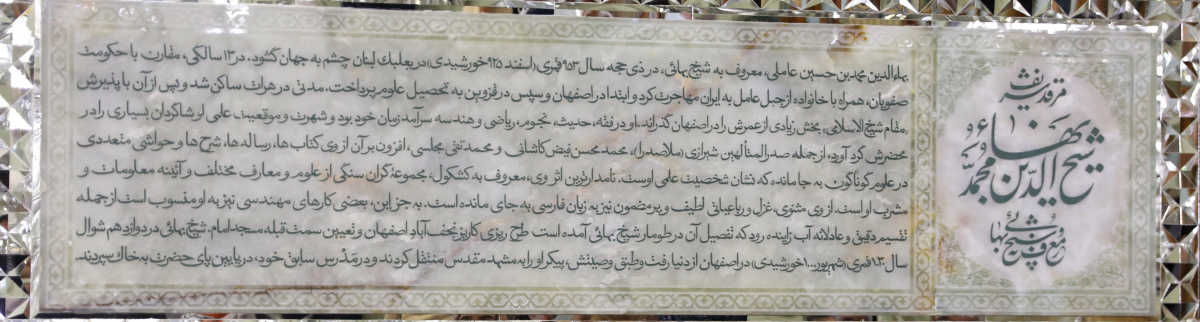 مرقد شریف
شیخ بهاءالدین محمد
معروف به شیخ بهائی
بهاءالدین محمد بن حسین عاملی، معروف به شیخ بهائی، در ذی حجه سال ۹۵۳ قمری (اسفند ۹۲۵ خورشیدی) در بعلبك لبنان چشم به جهان گشود. در ۱۳ سالگی، مقارن با حکومت
صفویان، همراه با خانواده از جبل عامل به ایران مهاجرت کرد و ابتدا در اصفهان و سپس در قزوین به تحصیل علوم پرداخت. مدتی در هرات ساکن شد و پس از آن با پذیرش
مقام شیخ الاسلامی، بخش زیادی از عمرش را در اصفهان گذراند. او در فقه، حدیث، نجوم، ریاضی و هندسه سرآمد زمان خود بود و شهرت و موقعیت علمی او شاگردان بسیاری را در
محضرش گرد آورد، از جمله صدرالمتألهین شیرازی (ملاصدرا)، محمد محسن فیض کاشانی و محمد تقی مجلسی. افزون بر آن از وی کتاب ها، رساله ها، شرح ها و حواشی متعددی
در علوم گوناگون به جا مانده که نشان شخصیت علمی اوست. نامدارترین اثر وی، معروف به کشکول، مجموعۀ گران سنگی از علوم و معارف مختلف و آئینه معلومات و
مشرب او است. از وی مثنوی، غزل و رباعیاتی لطیف و پر مضمون نیز به زبان فارسی به جای مانده است. به جز این، بعضی کارهای مهندسی نیز به او منسوب است از جمله
تقسیم دقیق و عادلانه آب زاینده رود که تفصیل آن در طومار شیخ بهائی آمده است طرح ریزی کاریز نجف آباد اصفهان و تعیین سمت قبله مسجد امام. شیخ بهائی در دوازدهم شوال
سال ۱۰۳۰ قمری (شهریور ۱۰۰۰ خورشیدی) در اصفهان از دنیا رفت و طبق وصیتش، پیکر او را به مشهد مقدس منتقل کردند و در مَدرَس سابق خود، در پایین پای حضرت به خاك سپردند.